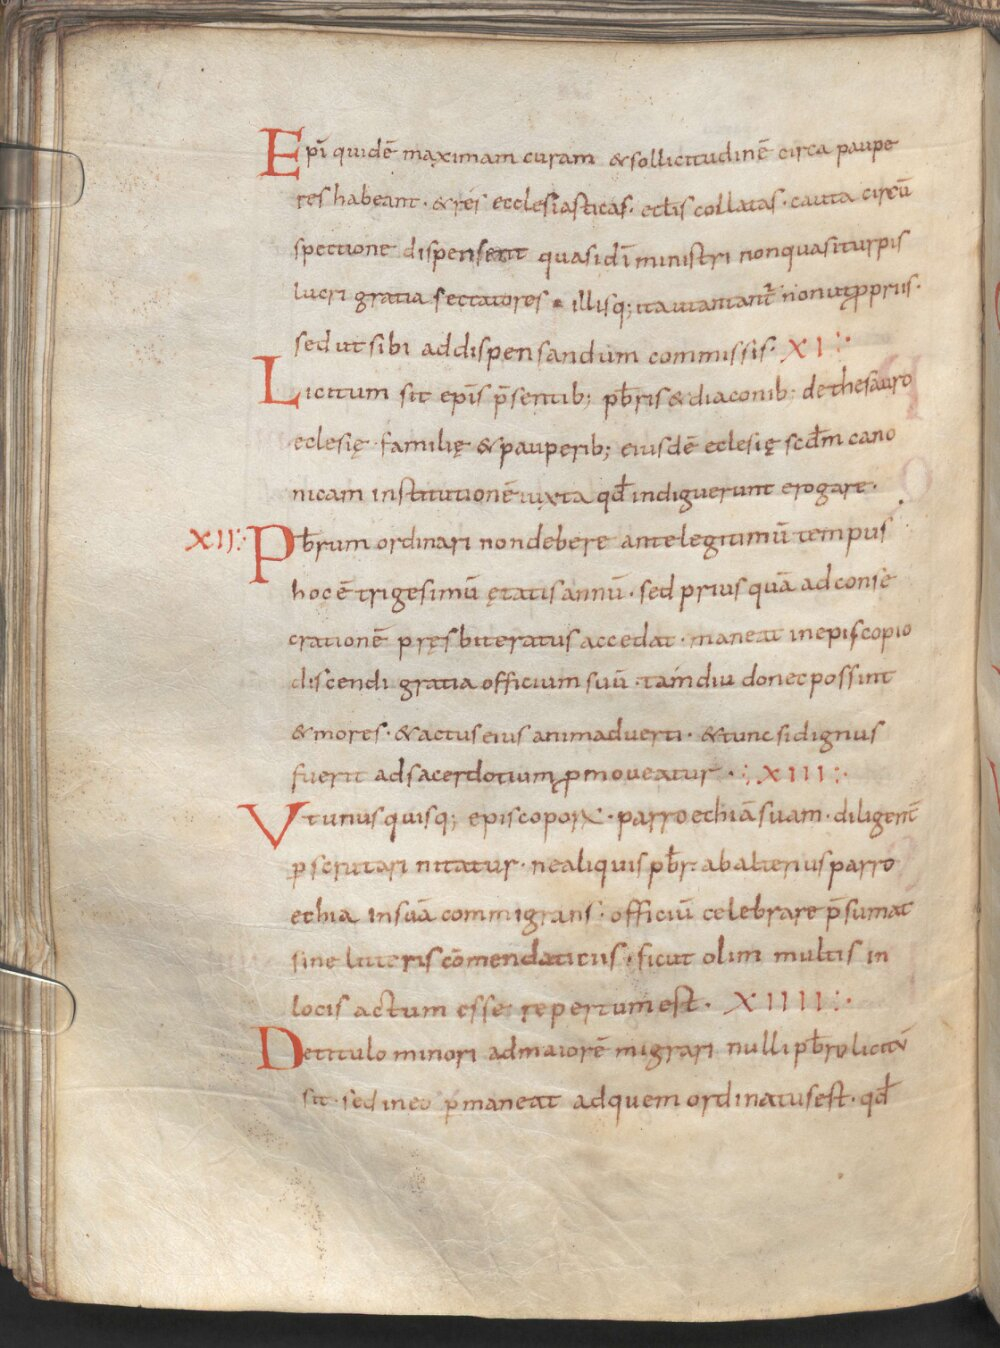 Epī quidē maximam curam &sollicitudinē circa paupe
res habeant · & rēs ecclesiasticas · ecclīs collatas · cauta circū
spectione dispensent quasi dī ministri non quasi turpis
lucri gratia sectatores · illisq; ita utantur̄ non ut ꝓpriis ·
sed ut sibi ad dispensandum commissis · XI :·
Licitum sit epīs p̄sentib; pb̄ris & diaconib; de thesauro
eclesię · familię & pauperib; eiusdē eclesię scđm cano
nicam institutionē iuxta qđ indiguerunt erogare ·
XII :· Pb̄rum ordinari non debere ante legitimū tempus
hoc ē trigesimū ętatis annū · sed priusquā ad conse
crationē pręsbiteratus accedat · maneat in episcopio
discendi gratia officium suū · tamdiu donec possint
& mores · & actus eius animaduerti · & tunc si dignus
fuerit ad sacerdotium ꝓmoueatur · :· XIII :·
Vt unusquisq; episcoporꝝ · parroechiā suam · diligent̄
ꝑscrutari nitatur · ne aliquis pb̄r ab alterius parro
echia in suā commigrans · officiū celebrare p̄sumat
sine litteris cōmendaticiis · sicut olim multis in
locis actum esse repertum est · XIIII :·
De titulo minori ad maiorē migrari nulli pb̄ro licitū
sit · sed in eo ꝑmaneat ad quem ordinatus est · qđ